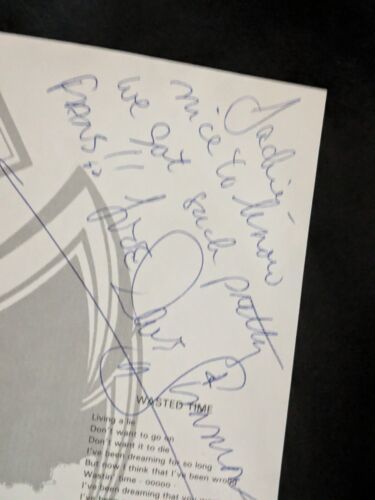 nice to know
we got such pretty
fans!!
WASTED TIME
Living a lie
Don't want to go on
Don't want it to die
I've been dreaming for so long
But now I think that I've been wrong
Wastin' time - ooooo -
I've been dreaming that you
I've been